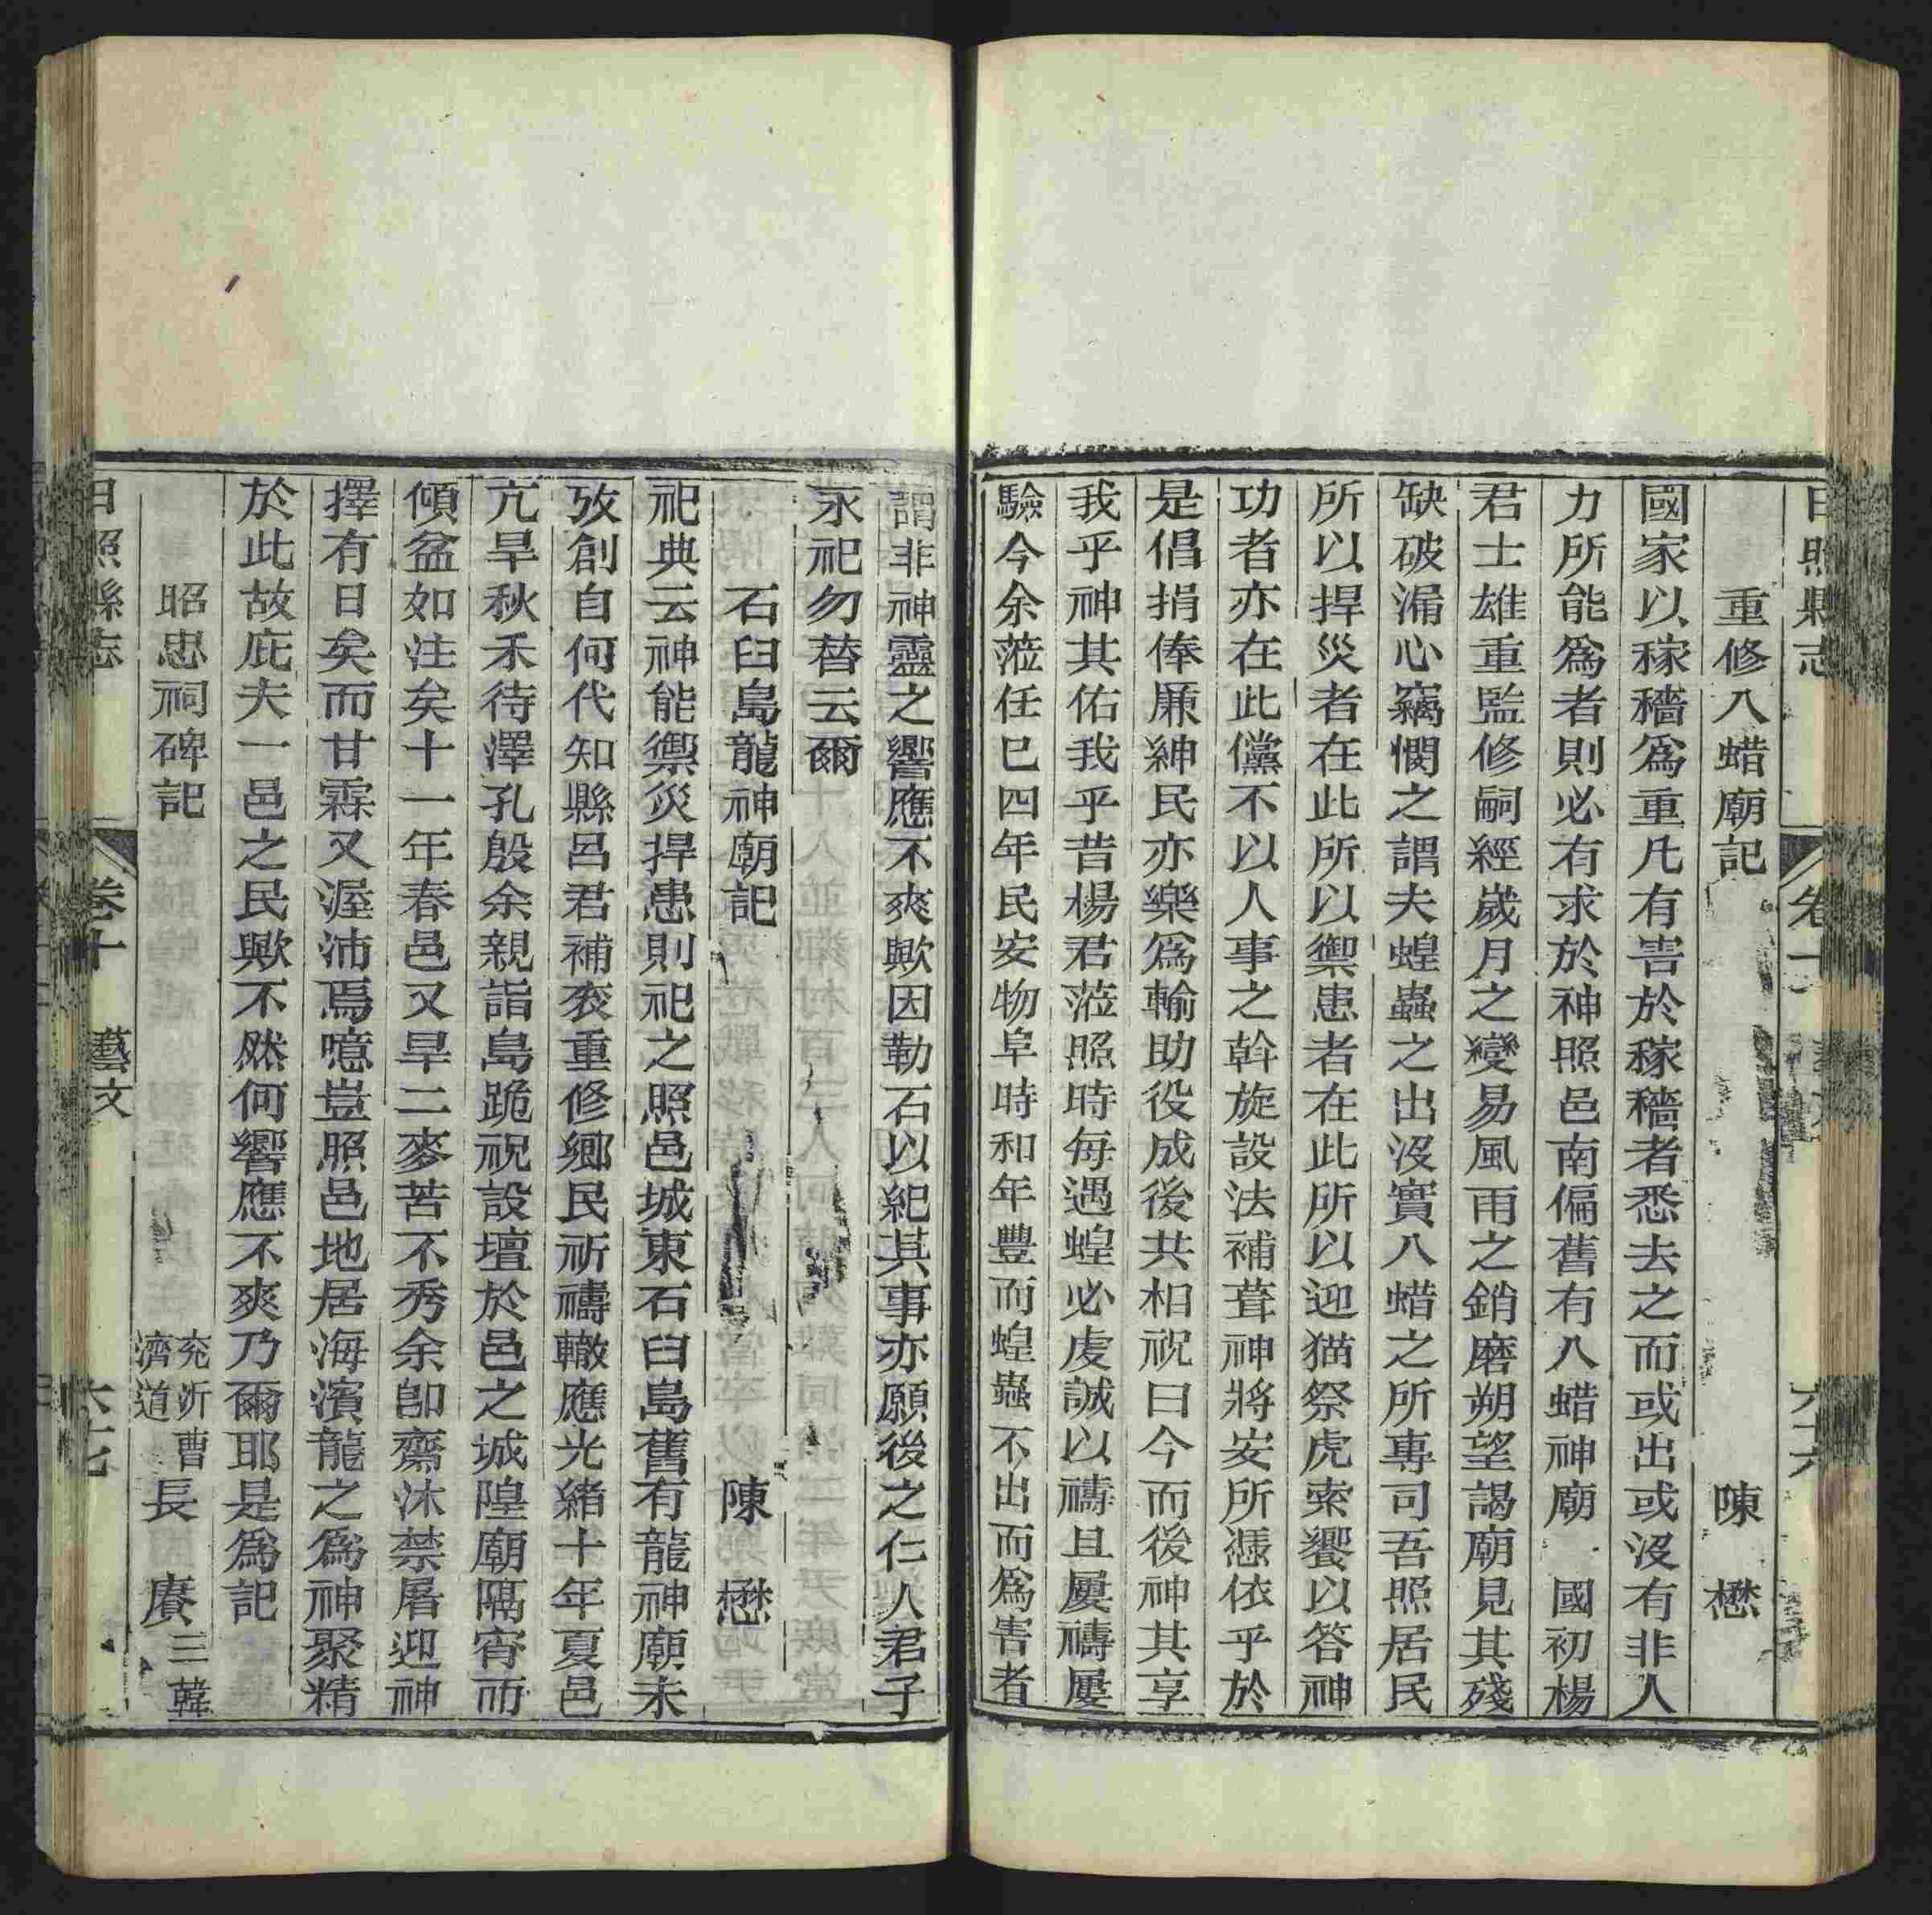 日照縣志 卷十 藝文 六十六
重修八蜡廟記 陳懋
國家以稼穡爲重凡有害於稼穡者悉去之而或出或沒有非人
力所能爲者則必有求於神照邑南偏舊有八蜡神廟 國初楊
君士雄重監修嗣經歲月之變易風雨之銷磨朔望謁廟見其殘
缺破漏心竊憫之謂夫蝗蟲之出沒實八蜡之所專司吾照居民
所以捍災者在此所以禦患者在此所以迎猫祭虎索饗以答神
功者亦在此儻不以人事之斡旋設法補葺神將安所憑依乎於
是倡捐俸廉紳民亦樂爲輸助役成後共相祝曰今而後神其享
我乎神其佑我乎昔楊君蒞照時每遇蝗必虔誠以禱且屢禱屢
驗今余蒞任巳四年民安物阜時和年豐而蝗蟲不出而爲害者
謂非神靈之響應不爽歟因勒石以紀其事亦願後之仁人君子
永祀勿替云爾
石臼島龍神廟記 陳懋
祀典云神能禦災捍患則祀之照邑城東石臼島舊有龍神廟未
攷創自何代知縣呂君補衮重修鄉民祈禱輒應光緒十年夏邑
亢旱秋禾待澤孔殷余親詣島跪祝設壇於邑之城隍廟隔宵而
傾盆如注矣十一年春邑又旱二麥苦不秀余卽齋沐禁屠迎神
擇有日矣而甘霖又渥沛焉噫豈照邑地居海濱龍之爲神聚精
於此故庇夫一邑之民歟不然何響應不爽乃爾耶是爲記
昭忠祠碑記 兖沂曹濟道 長賡 三韓
日照縣志 卷十 藝文 六十七